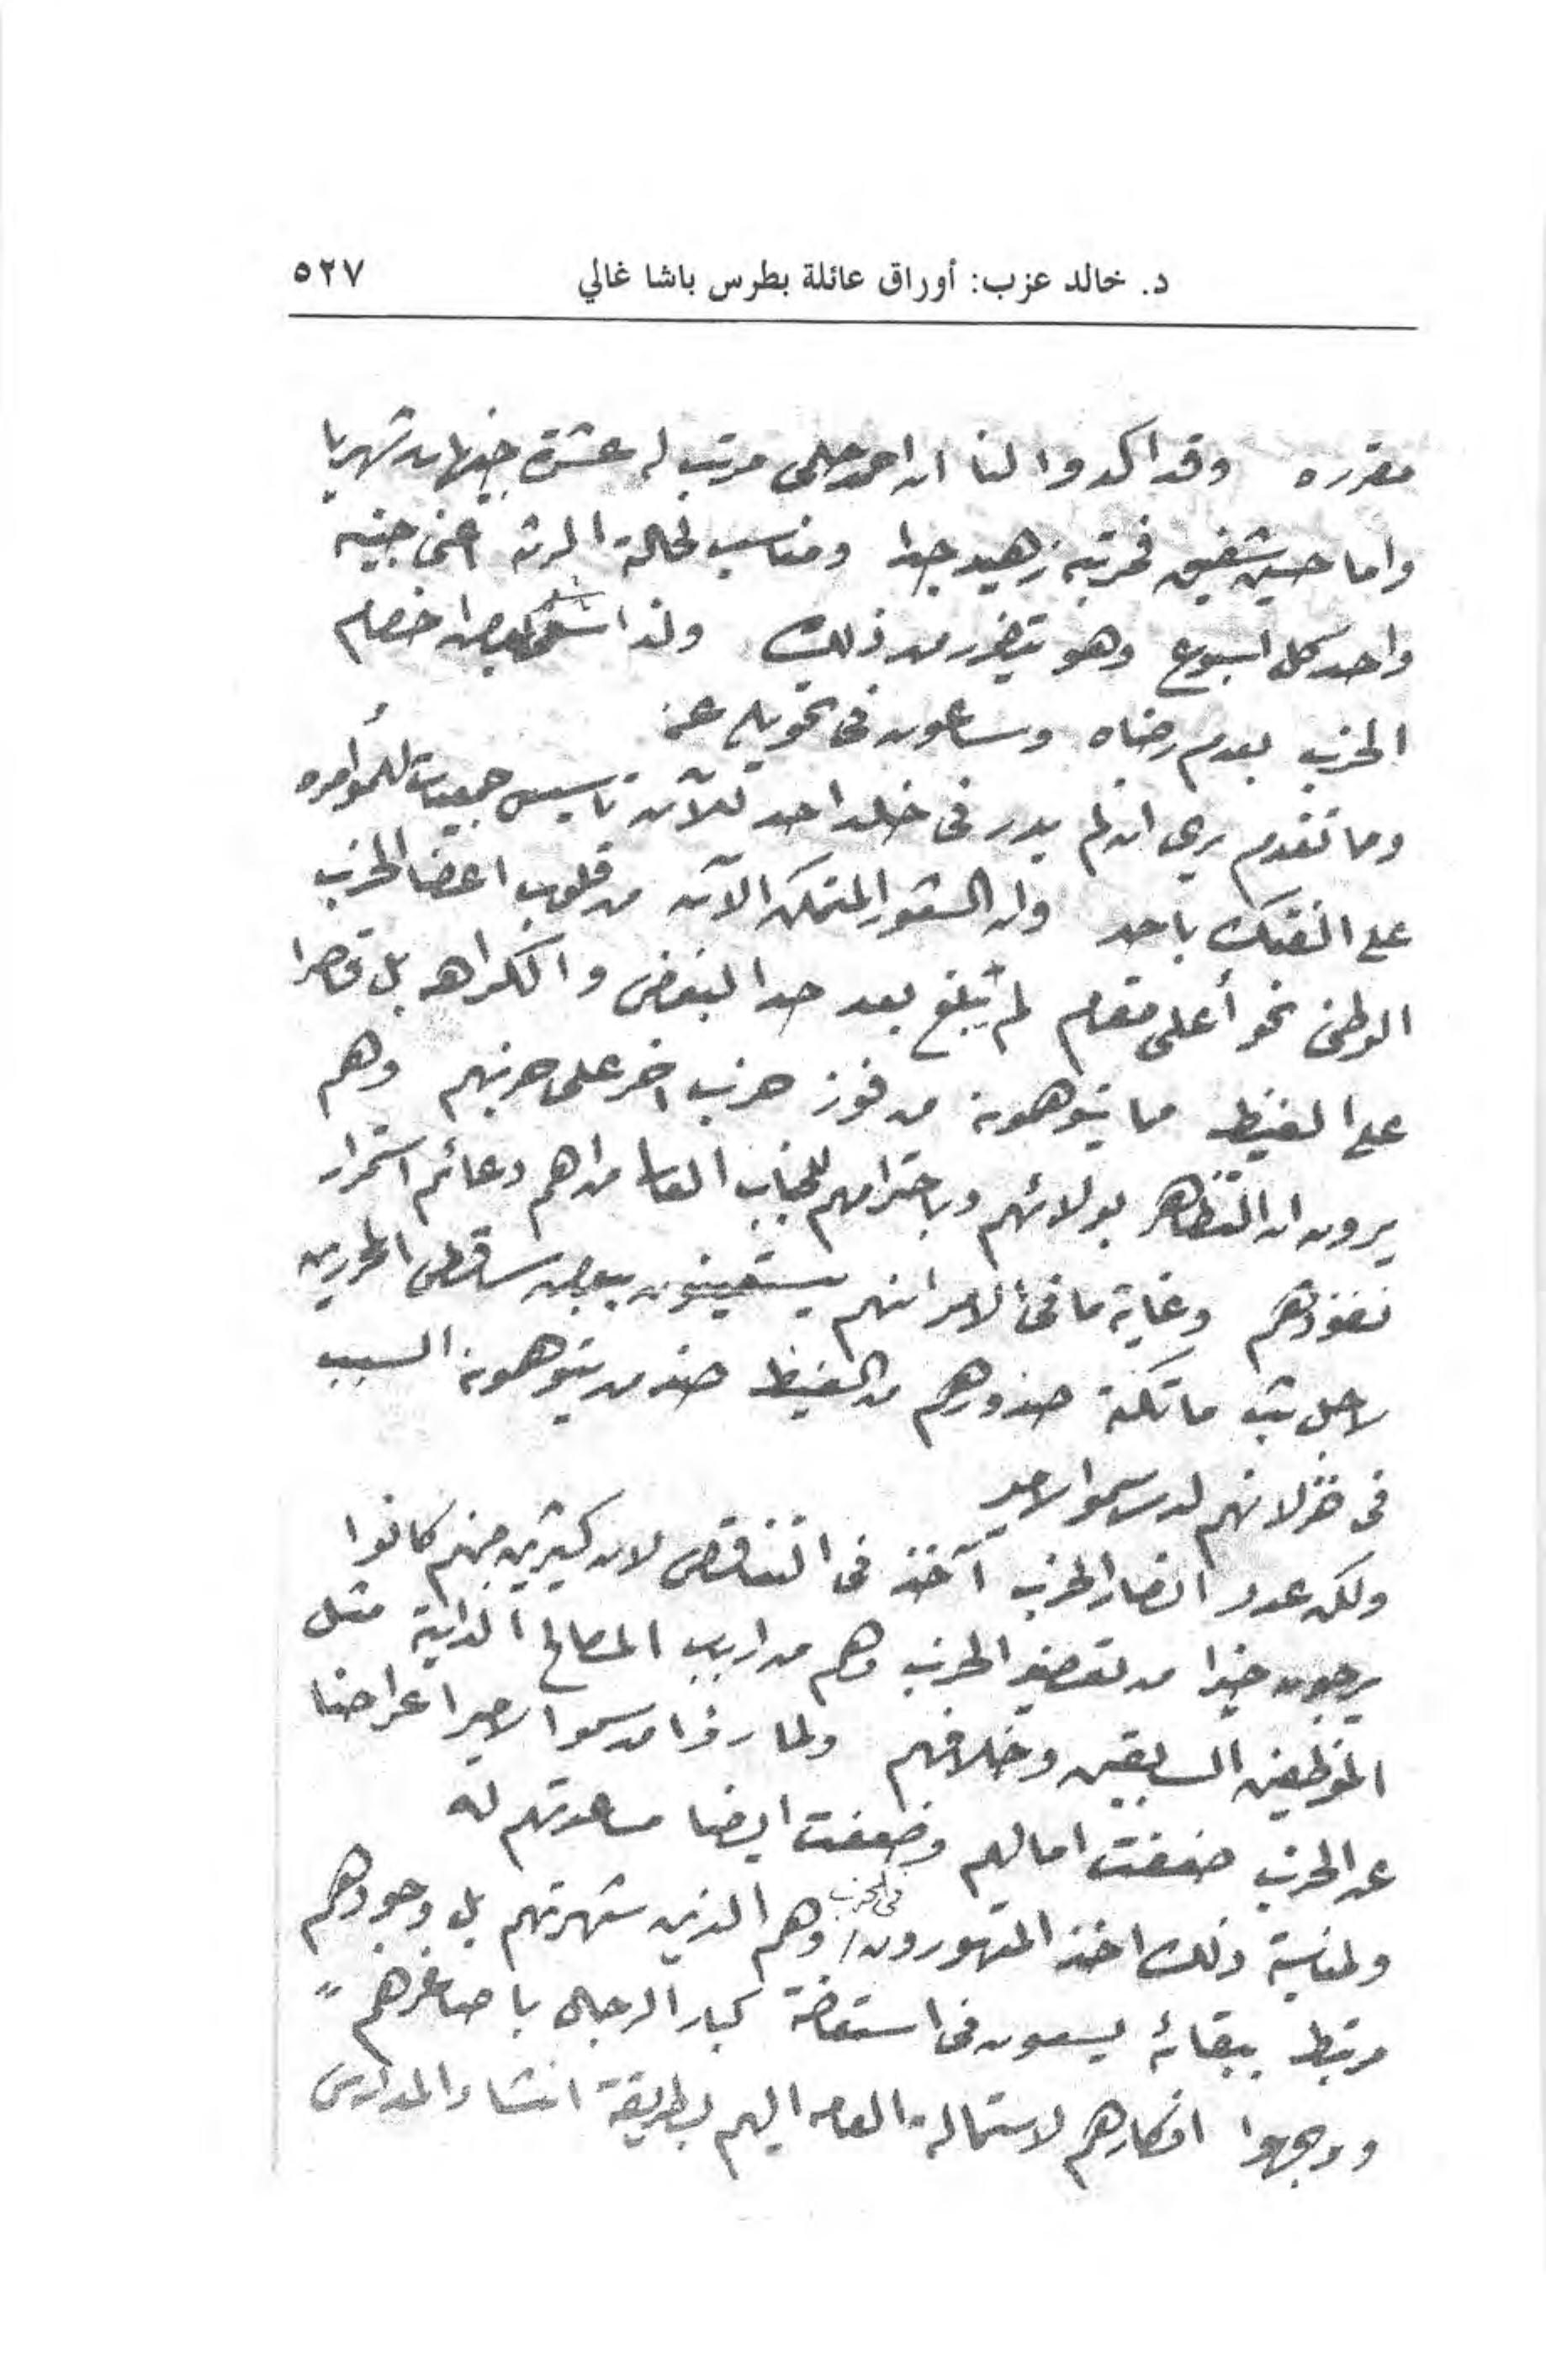 د. خالد عزب: أوراق عائلة بطرس باشا غالي ٥٢٧
مقرره وقد اكدوا لنا ان احمد حلمى مرتب له عشرة جنيهات شهريا
واما حسين شفيق فمرتبه زهيد جدا ومناسب لحالته المرثه اعنى جنيه
واحد كل اسبوع وهو يتضرر من ذلك ولذا بعض اخصام
الحزب بعدم رضاه وساعون فى تحويله عنه
ومما تقدم يرى انه لم يدر فى خلد احد للآن تاسيس جمعيات للمؤامره
على الفتك باحد وان الشعور المتمكن الآن من قلوب اعضا الحزب
الوطنى نحو أعلى مقام لم يبلغ بعد حد البغض والكراهه بل قاصرا
على الغيظ مما يتوهمونه من فوز حزب اخر على حزبهم وهم
يرون ان التظاهر بولائهم وباحترامهم للجناب العالى من اهم دعائم استمرار
نفوذهم وغاية ما فى الامر انهم يستعينون ببعض ساقطى المحررين
لاجل بث ما تكنه صدورهم من الغيظ ضد من يتوهمونه السبب
فى خذلانهم لدى سمو الامير
ولكن عدد انصار الحزب آخذ فى التناقص لان كثيرين منهم كانوا
يرجون خيرا من تعضيد الحزب وهم من ارباب المصالح الذاتية مثل
الموظفين السابقين وخلافهم ولما رأوا من سمو الامير اعراضا
عن الحزب ضعفت امالهم وضعفت ايضا مساعدتهم له
ولمناسبة ذلك اخذ المتهورون فى الحزب وهم الذين شهرتهم بل وجودهم
مرتبط ببقائه يسعون فى استعاضة كبار الرجال باصاغرهم
ووجهوا افكارهم لاستمالة العامه اليهم بطريقة انتشار المدارس